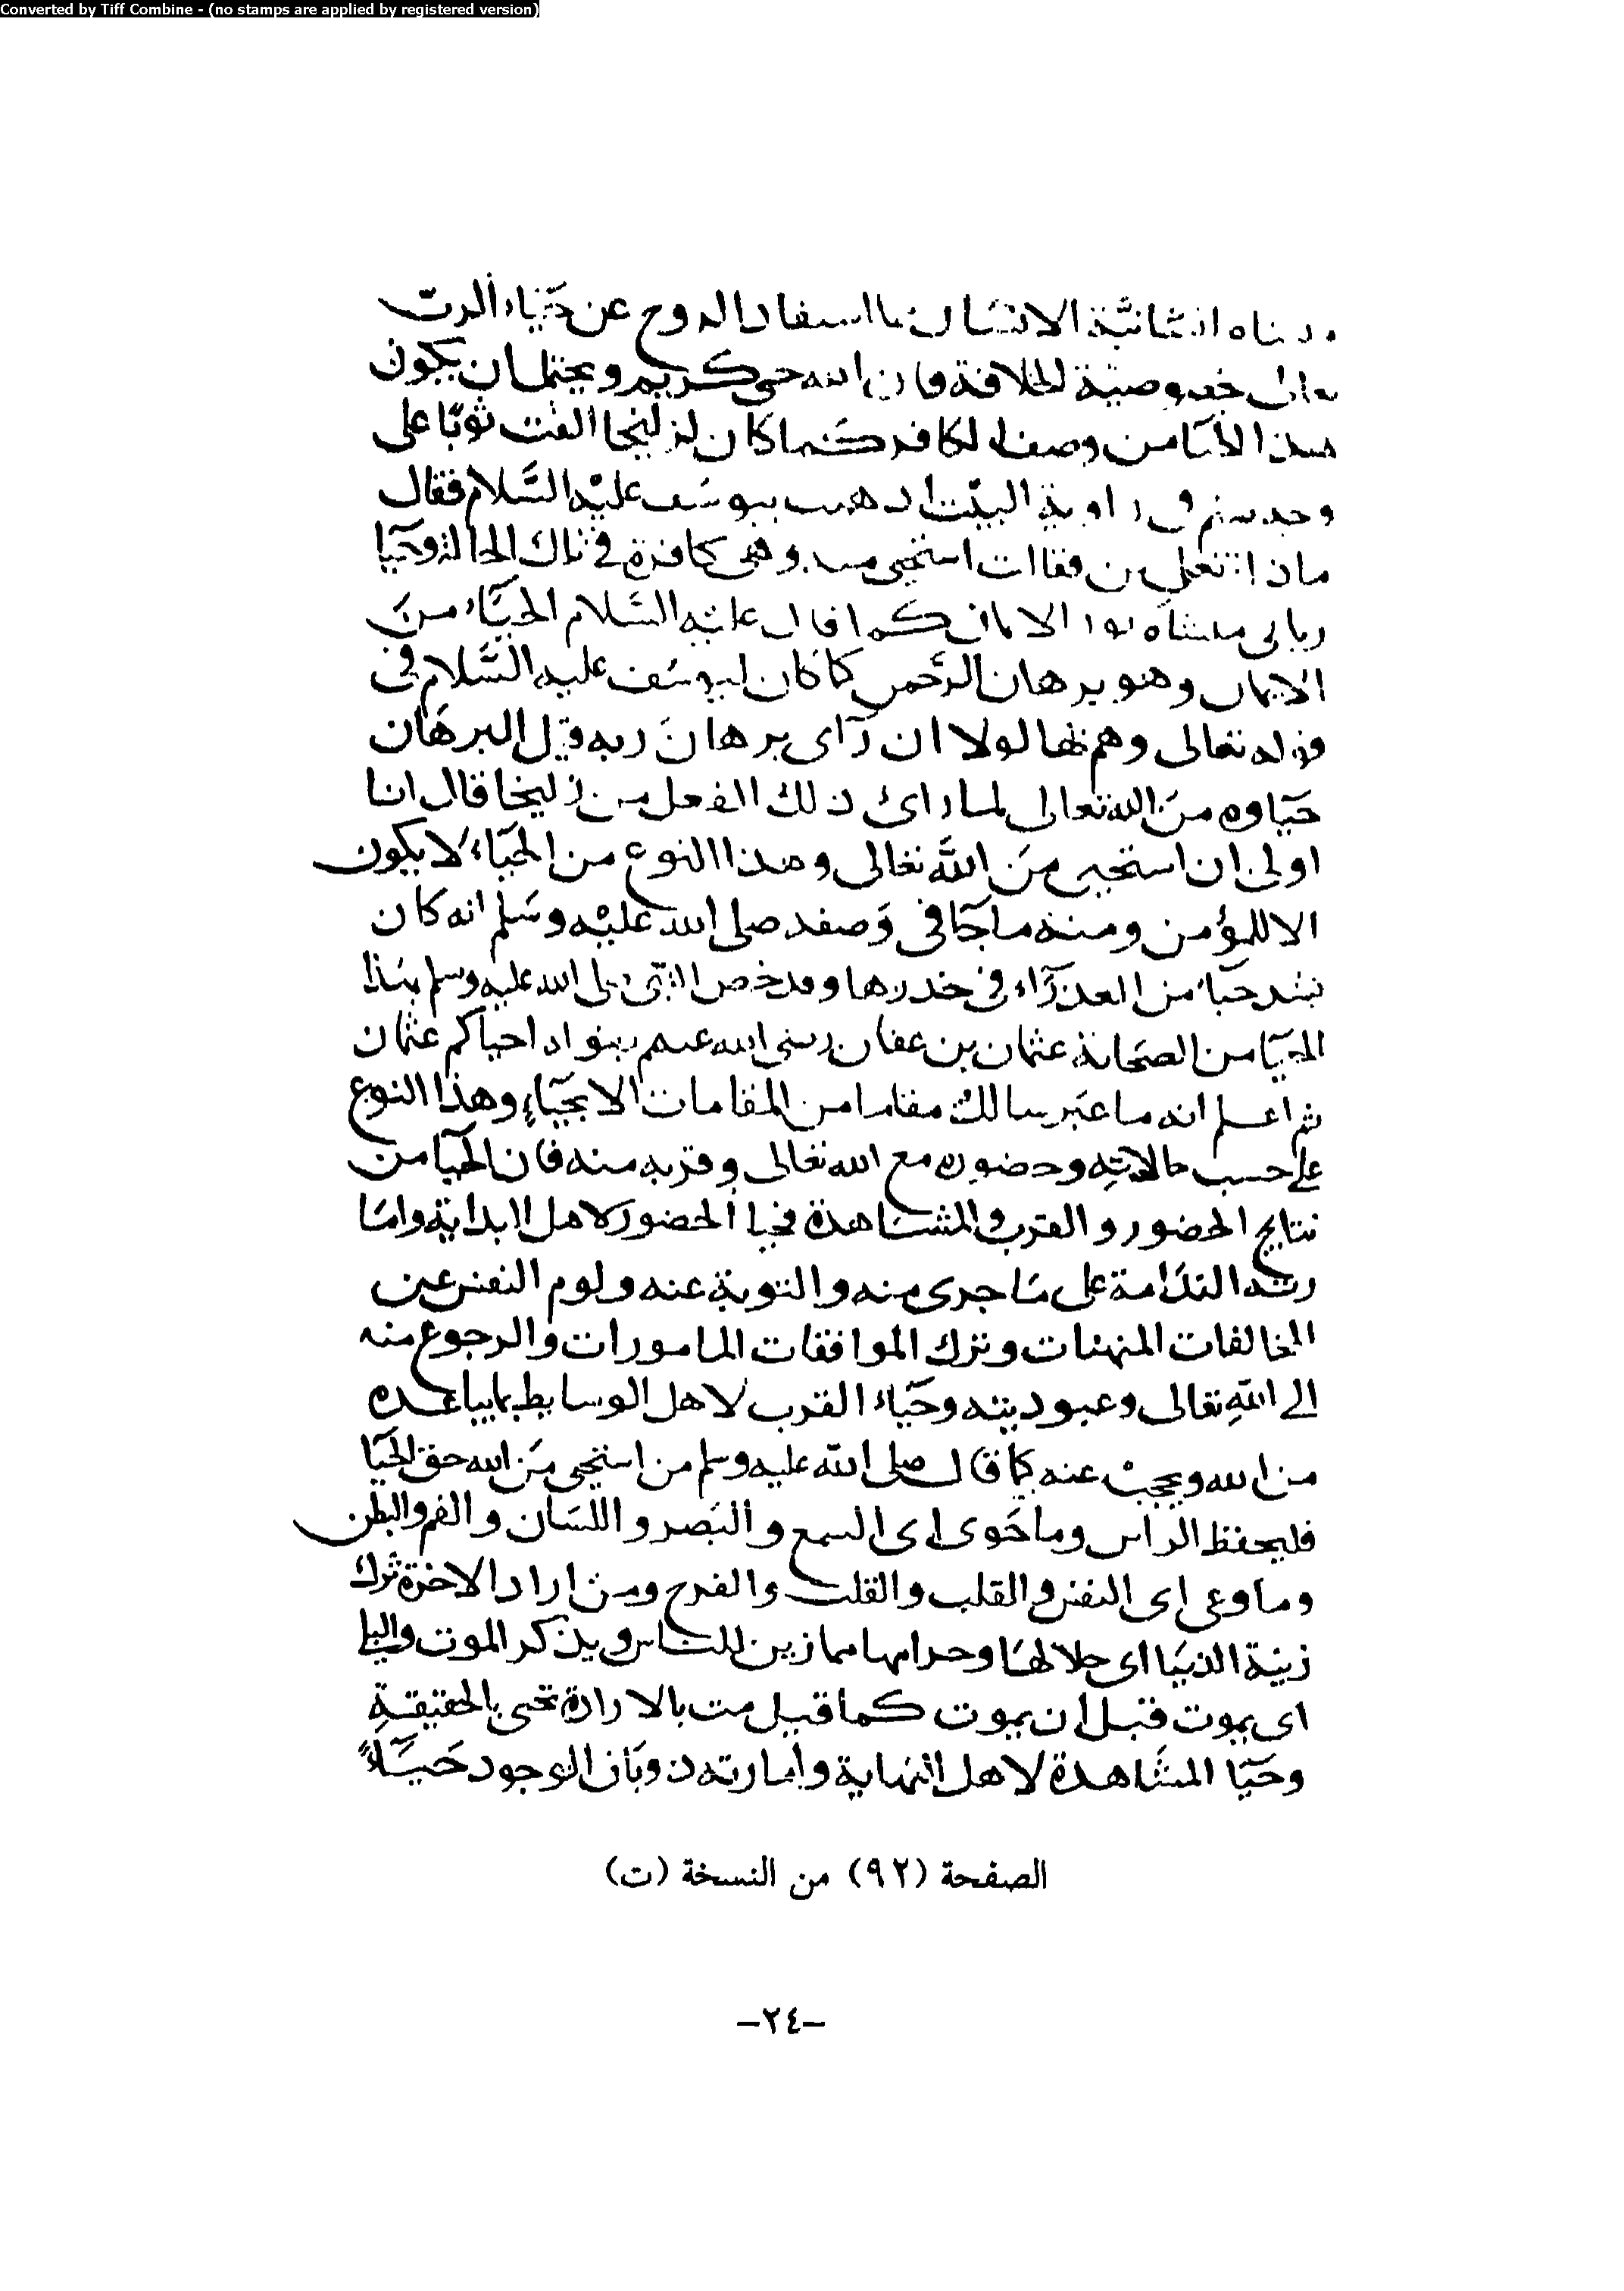 Converted by Tiff Combine - (no stamps are applied by registered version)
انسانية الانسان الروح عن حياء الرب
خصوصية للخلافة فان الله حي كريم ويحتمل ان يكون
هذا الحيا من وصف الكافر كما كان لزليخا القت ثوبا على
وجه صنم في زاوية البيت يوسف عليه السلام فقال
ماذا تفعلين فقالت استحيى منه وهي كافرة في تلك الحالة وحيا
رباني منشاه نور الايمان كما قال عليه السلام الحياء من
الايمان وهو برهان الرحمن كما كان ليوسف عليه السلام في
قوله تعالى وهم بها لولا ان رآى برهان ربه قيل البرهان
حياوه من الله تعالى لما راى ذلك الفعل من زليخا قال انا
اولى ان استحيى من الله تعالى وهذا النوع من الحياء لا يكون
الا للمؤمن ومنه ما جآ في وصفه صلى الله عليه وسلم انه كان
اشد حياء من العذرآء في خدرها وقد خص النبى صلى الله عليه وسلم بهذا
الحيا من الصحابة عثمان بن عفان رضى الله عنهم احياكم عثمان
ثم اعلم انه ما عبر سالك مقاما من المقامات الا بحياء وهذا النوع
على حسب حالاته وحضوره مع الله تعالى وقربه منه فان الحيا من
نتايج الحضور والقرب والمشاهدة فحيا الحضور لاهل البداية وامارته
الندامة على ما جرى منه والتوبة عنه ولوم النفس عن
المخالفات المنهيات وترك الموافقات المامورات والرجوع منه
الى الله تعالى وعبوديته وحياء القرب لاهل الوسايط بما يباعده
من الله ويحجب عنه كما قال صلى الله عليه وسلم من استحيى من الله حق الحيا
فليحفظ الراس وما حوى اى السمع والبصر واللسان والفم والبطن
وما وعى اى النفس والقلب والفرج ومن اراد الاخرة ترك
زينة الدنيا اى حلالها وحرامها مما زين للناس ويذكر الموت والبلى
اى يموت قبل ان يموت كما قيل مت بالارادة تحى بالحقيقة
وحيا المشاهدة لاهل النهاية وامارته ذوبان الوجود حياء
الصفحة (٩٢) من النسخة (ت)
-٢٤-